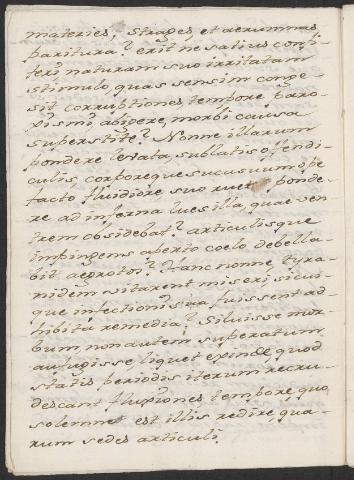 materies, strages, et aerumnas
paritura? erit ne satius confi-
teri naturam suo irritatam
stimulo, quas sensim conge-
sit corruptiones tempore paro-
xismi abigere, morbi causa
superstite? Nonne illarum
pondere levata, sublatis offendi-
culis, corporeque sucuum ope
facto fluidiore suo ruet ponde-
re ad inferna lues illa, quae ven-
trem obsidebat? articulisque
impingens aberto coelo debella-
bit aegrotos? Hanc nonne tyra-
nidem vitarent miseri, sicui-
que infectioni sua fuissent ad-
hibita remedia? Siluisse mor-
bum, non autem superatum
aufugisse liquet ex inde quod
statis periodis iterum recru-
descant fluxiones tempore, quo
solemne est illis redire, qua-
rum sedes articuli.